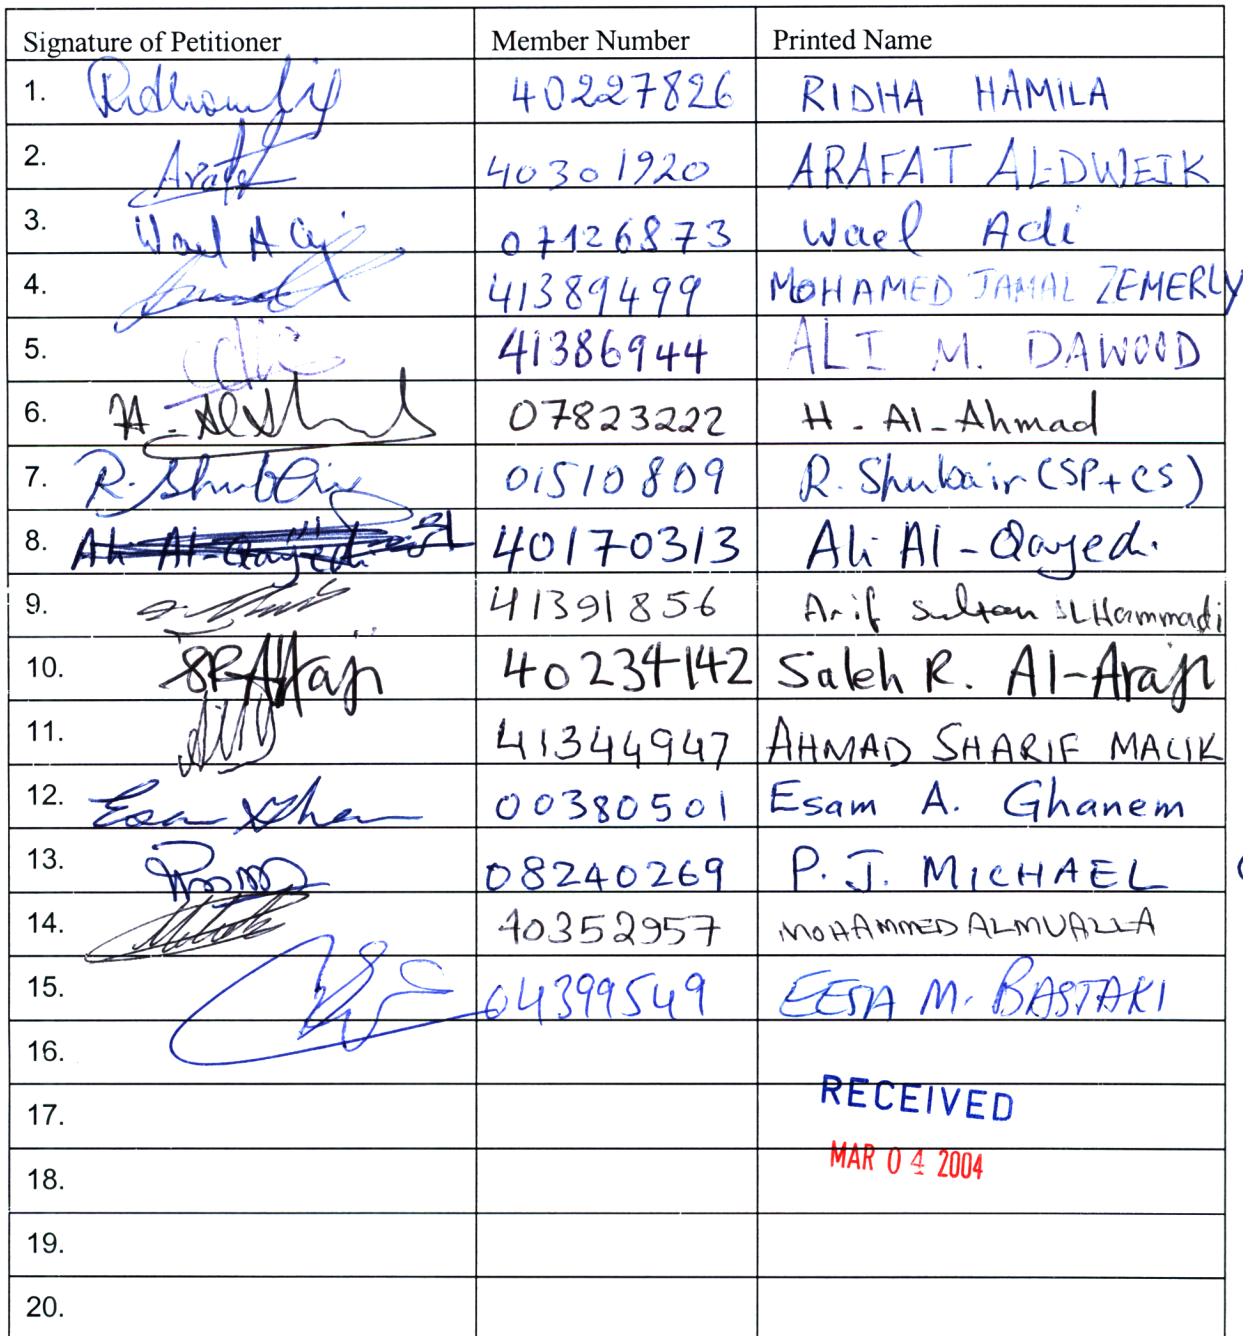 Signature of Petitioner Member Number Printed Name
1. 40227826 RIDHA HAMILA
2. Arafat 40301920 ARAFAT AL-DWEIK
3. Wael A 07126873 Wael Adi
4. 41389499 MOHAMED JAMAL ZEMERLY
5. 41386944 ALI M. DAWOOD
6. H. 07823222 H. Al-Ahmad
7. R. Shubair 01510809 R. Shubair (SP+CS)
8. Ali Al-Qayedi 40170313 Ali Al-Qayedi
9. 41391856 Arif Sultan Hammadi
10. SR Al-Araji 40234142 Saleh R. Al-Araji
11. 41344947 AHMAD SHARIF MALIK
12. Esam Ghanem 00380501 Esam A. Ghanem
13. 08240269 P. J. MICHAEL
14. 40352957 MOHAMMED ALMUALLA
15. 04399549 EESA M. BASTAKI
16.
17. RECEIVED
18. MAR 04 2004
19.
20.